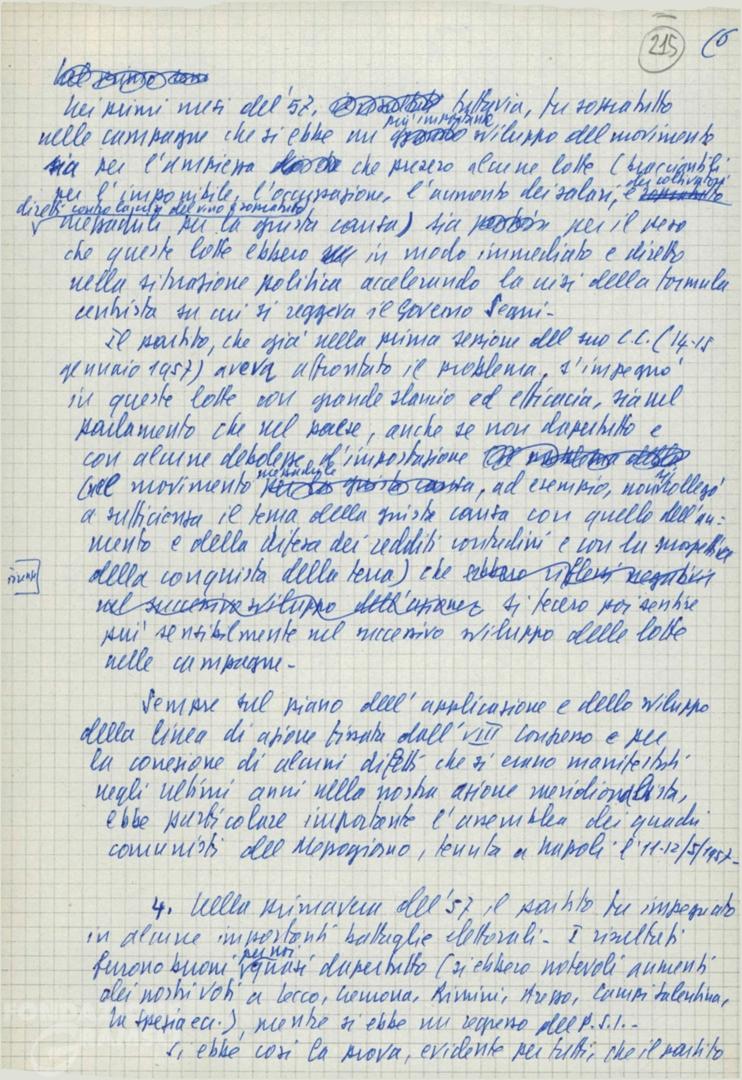 215
6
Nei primi mesi del '57, tuttavia, fu soprattutto
nelle campagne che si ebbe un più importante sviluppo del movimento
sia per l'ampiezza che presero alcune lotte (bracciantili
per l'imponibile, l'occupazione, l'aumento dei salari, e dei coltivatori
diretti contro la crisi del vino e soprattutto
mezzadrili per la giusta causa) sia per il peso
che queste lotte ebbero in modo immediato e diretto
nella situazione politica accelerando la crisi della formula
centrista su cui si reggeva il Governo Segni-
Il partito, che già nella prima sessione del suo C.C. (14-15
gennaio 1957) aveva affrontato il problema, s'impegnò
in queste lotte con grande slancio ed efficacia, sia nel
parlamento che nel paese, anche se non dapertutto e
con alcune debolezze d'impostazione
(nel movimento mezzadrile, ad esempio, non si collegò
a sufficienza il tema della giusta causa con quello dell'au-
mento e della difesa dei redditi contadini e con la prospettiva
della conquista della terra) che
si fecero poi sentire
più sensibilmente nel successivo sviluppo delle lotte
nelle campagne-
Sempre sul piano dell'applicazione e dello sviluppo
della linea di azione fissata dall'VIII Congresso e per
la correzione di alcuni difetti che si erano manifestati
negli ultimi anni nella nostra azione meridionalista,
ebbe particolare importanza l'assemblea dei quadri
comunisti del Mezzogiorno, tenuta a Napoli l'11-12/5/1957-
4. Nella primavera del '57 il partito fu impegnato
in alcune importanti battaglie elettorali- I risultati
furono buoni per noi quasi dapertutto (si ebbero notevoli aumenti
dei nostri voti a Lecco, Cremona, Rimini, Arezzo, Campi Salentina,
La Spezia ecc.), mentre si ebbe un regresso del P.S.I.-
Si ebbe così la prova, evidente per tutti, che il partito